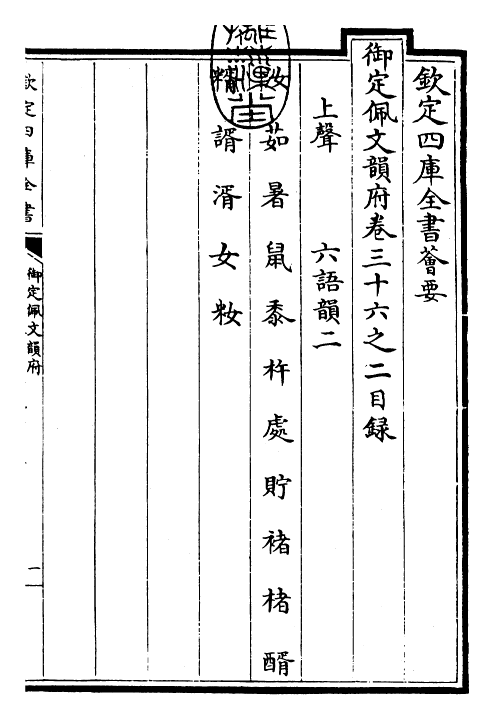 欽定四庫全書薈要
御定佩文韻府卷三十六之二目録
上聲　六語韻二
汝茹暑鼠黍杵處貯褚楮醑
糈諝湑女籹
欽定四庫全書
御定佩文韻府
一